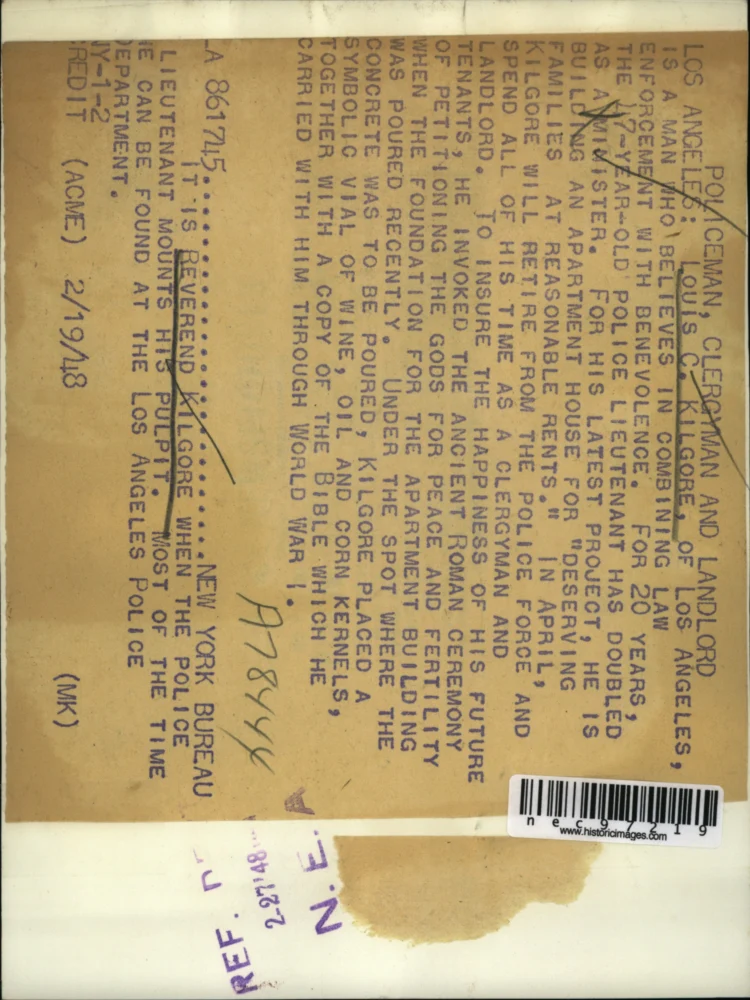 POLICEMAN, CLERGYMAN AND LANDLORD
LOS ANGELES: LOUIS C. KILGORE, OF LOS ANGELES,
IS A MAN WHO BELIEVES IN COMBINING LAW
ENFORCEMENT WITH BENEVOLENCE. FOR 20 YEARS,
THE 47-YEAR-OLD POLICE LIEUTENANT HAS DOUBLED
AS A MINISTER. FOR HIS LATEST PROJECT, HE IS
BUILDING AN APARTMENT HOUSE FOR "DESERVING
FAMILIES AT REASONABLE RENTS." IN APRIL,
KILGORE WILL RETIRE FROM THE POLICE FORCE AND
SPEND ALL OF HIS TIME AS A CLERGYMAN AND
LANDLORD. TO INSURE THE HAPPINESS OF HIS FUTURE
TENANTS, HE INVOKED THE ANCIENT ROMAN CEREMONY
OF PETITIONING THE GODS FOR PEACE AND FERTILITY
WHEN THE FOUNDATION FOR THE APARTMENT BUILDING
WAS POURED RECENTLY. UNDER THE SPOT WHERE THE
CONCRETE WAS TO BE POURED, KILGORE PLACED A
SYMBOLIC VIAL OF WINE, OIL AND CORN KERNELS,
TOGETHER WITH A COPY OF THE BIBLE WHICH HE
CARRIED WITH HIM THROUGH WORLD WAR I.
A78444
LA 861745.......................NEW YORK BUREAU
IT IS REVEREND KILGORE WHEN THE POLICE
LIEUTENANT MOUNTS HIS PULPIT. MOST OF THE TIME
HE CAN BE FOUND AT THE LOS ANGELES POLICE
DEPARTMENT.
NY-1-2
CREDIT (ACME) 2/19/48 (MK)
nec97219
www.historicimages.com
N. E. A
2-27'48
REF.